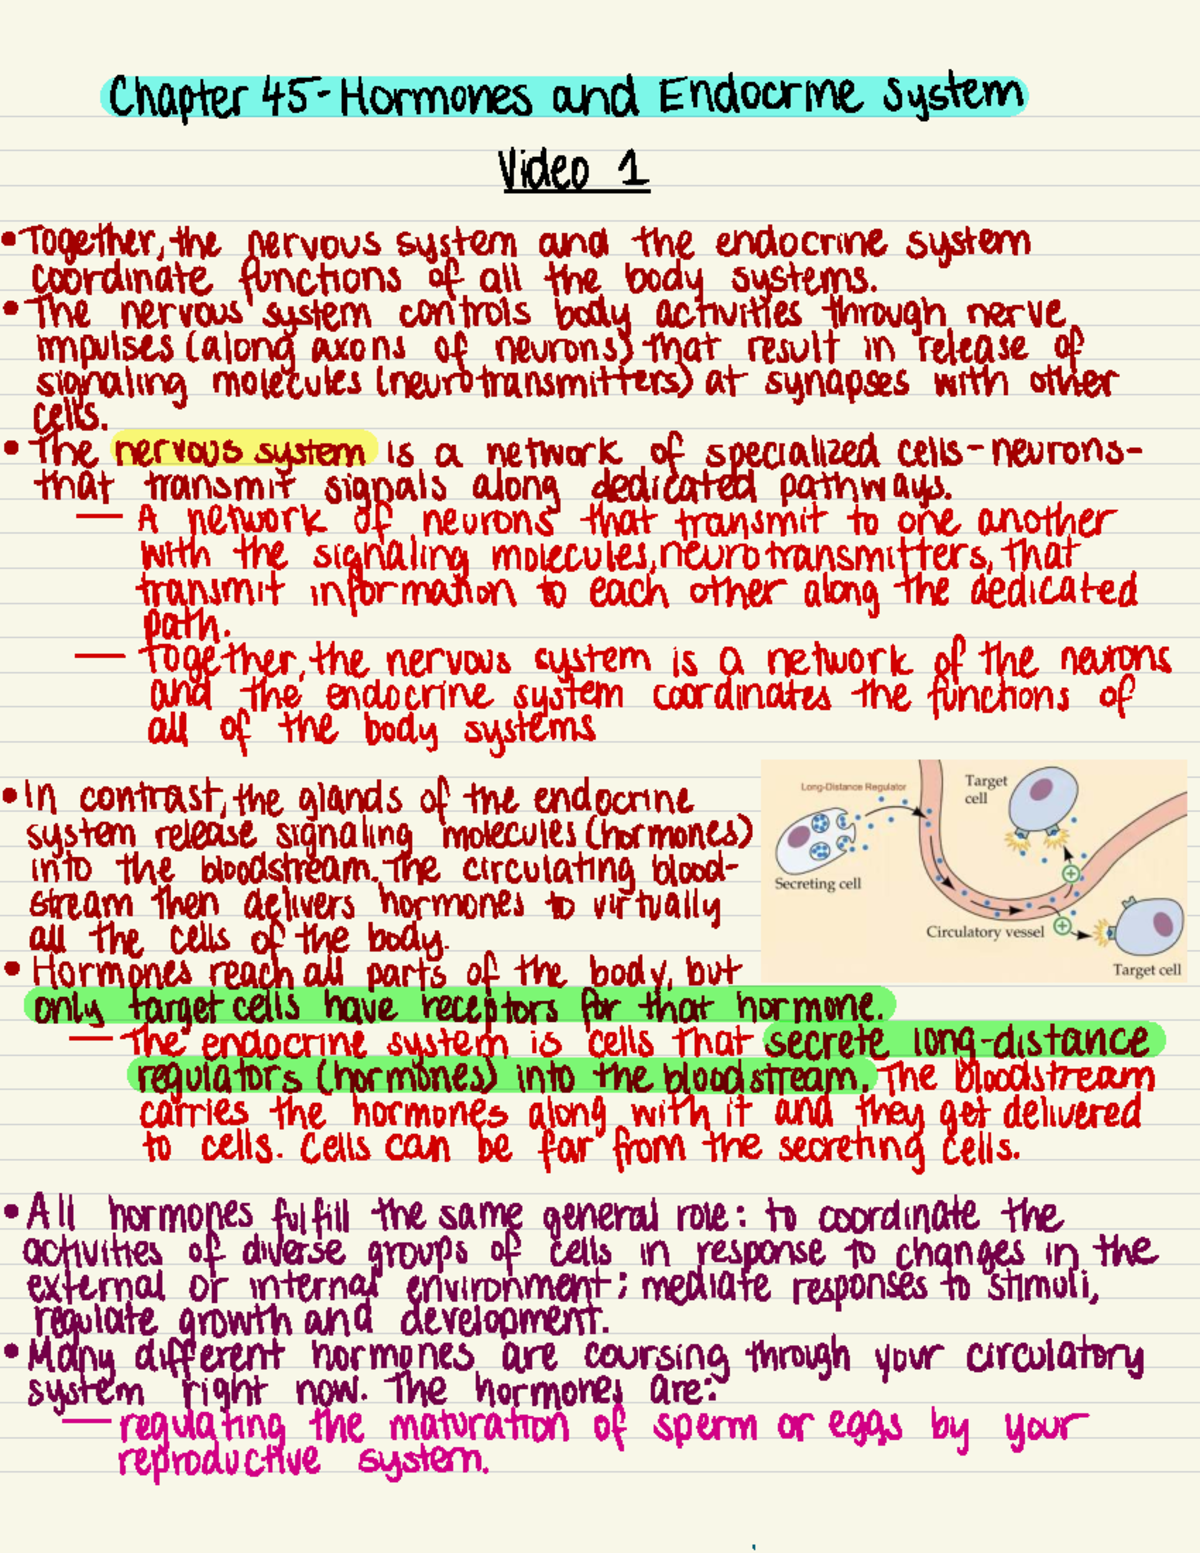 Chapter 45-Hormones and Endocrine System
Video 1
• Together, the nervous system and the endocrine system
coordinate functions of all the body systems.
• The nervous system controls body activities through nerve
impulses (along axons of neurons) that result in release of
signaling molecules (neurotransmitters) at synapses with other
cells.
• The nervous system is a network of specialized cells-neurons-
that transmit signals along dedicated pathways.
— A network of neurons that transmit to one another
with the signaling molecules, neurotransmitters, that
transmit information to each other along the dedicated
path.
— Together, the nervous system is a network of the neurons
and the endocrine system coordinates the functions of
all of the body systems
• In contrast, the glands of the endocrine
system release signaling molecules (hormones)
into the bloodstream. The circulating blood-
stream then delivers hormones to virtually
all the cells of the body.
• Hormones reach all parts of the body, but
only target cells have receptors for that hormone.
Long-Distance Regulator
Target
cell
Secreting cell
Circulatory vessel
Target cell
— The endocrine system is cells that secrete long-distance
regulators (hormones) into the bloodstream. The bloodstream
carries the hormones along with it and they get delivered
to cells. Cells can be far from the secreting cells.
• All hormones fulfill the same general role: to coordinate the
activities of diverse groups of cells in response to changes in the
external or internal environment; mediate responses to stimuli,
regulate growth and development.
• Many different hormones are coursing through your circulatory
system right now. The hormones are:
— regulating the maturation of sperm or eggs by your
reproductive system.